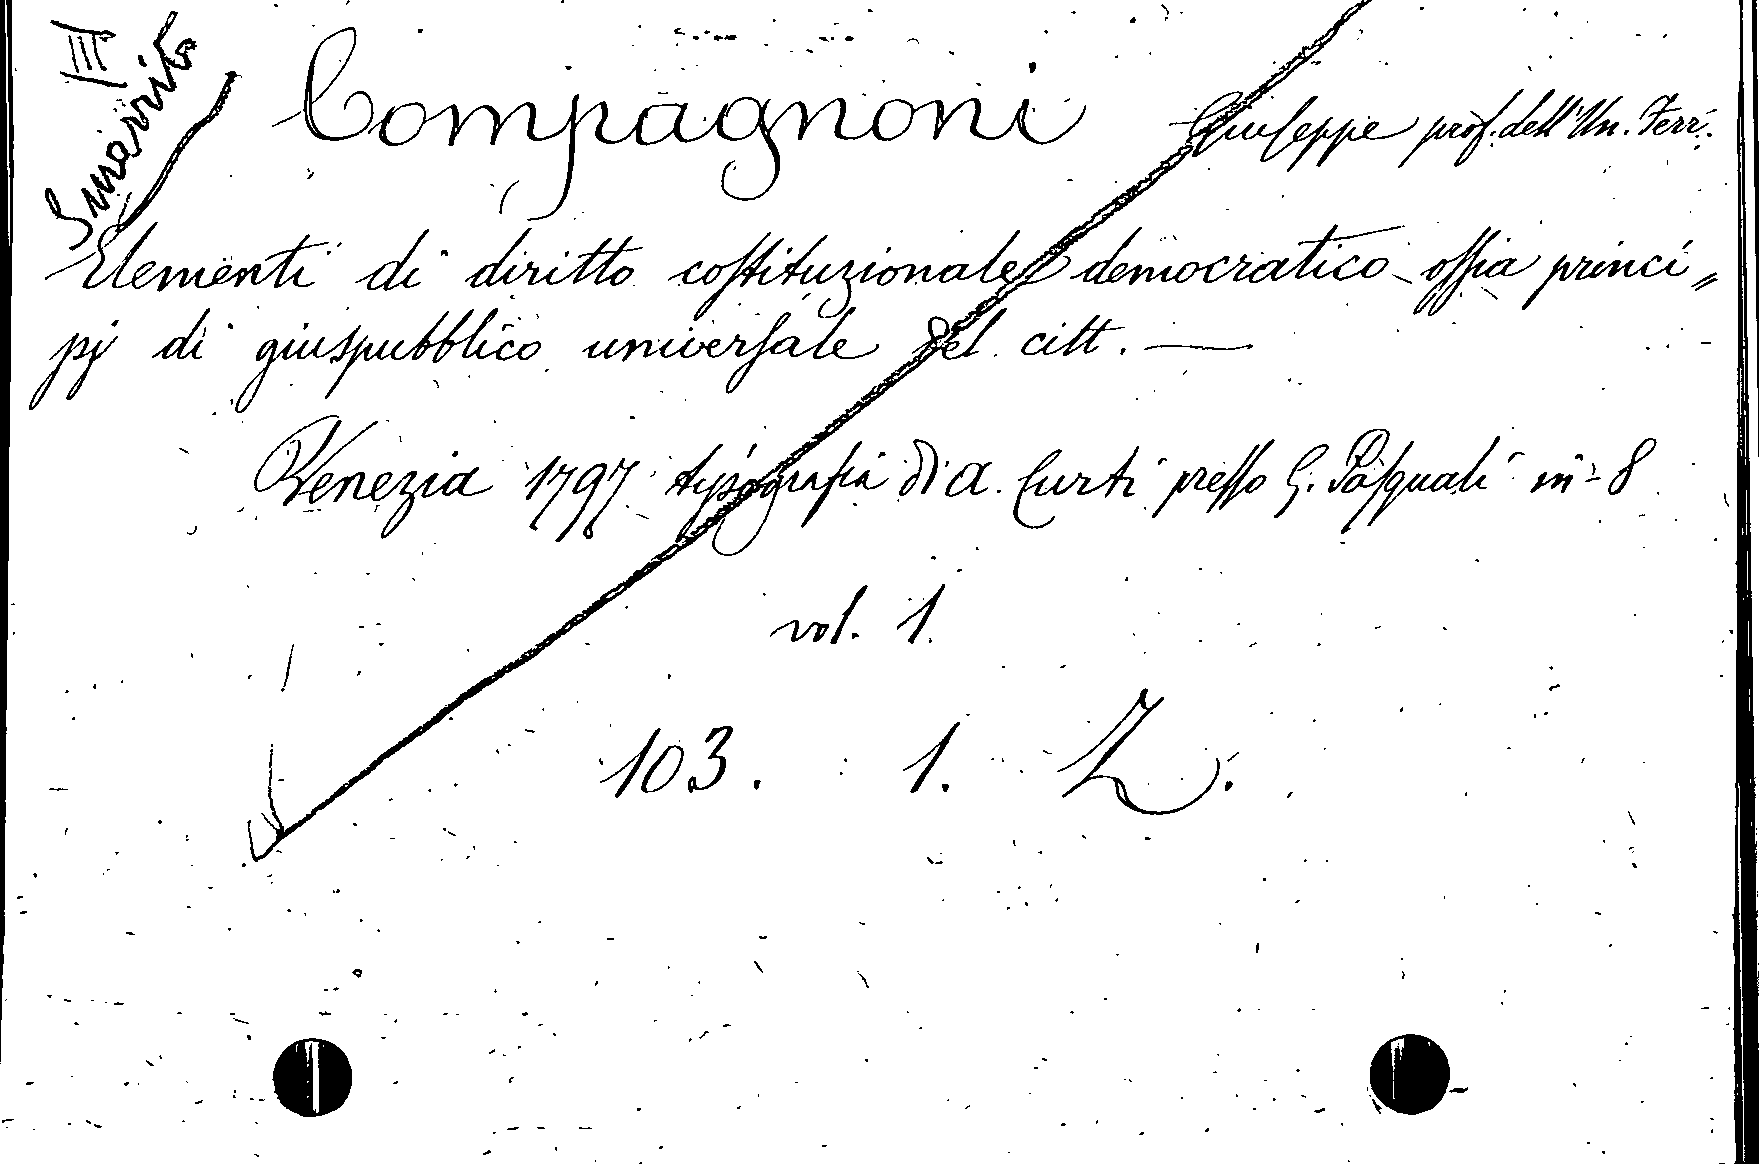 III
Smarrito
Compagnoni Giuseppe prof. dell'Un. Ferr.
Elementi di diritto costituzionale democratico ossia princi„
pj di giuspubblico universale del citt. —
Venezia 1797 tipografia di A. Curti presso G. Pasquali in-8
vol. 1.
103. 1. Z.